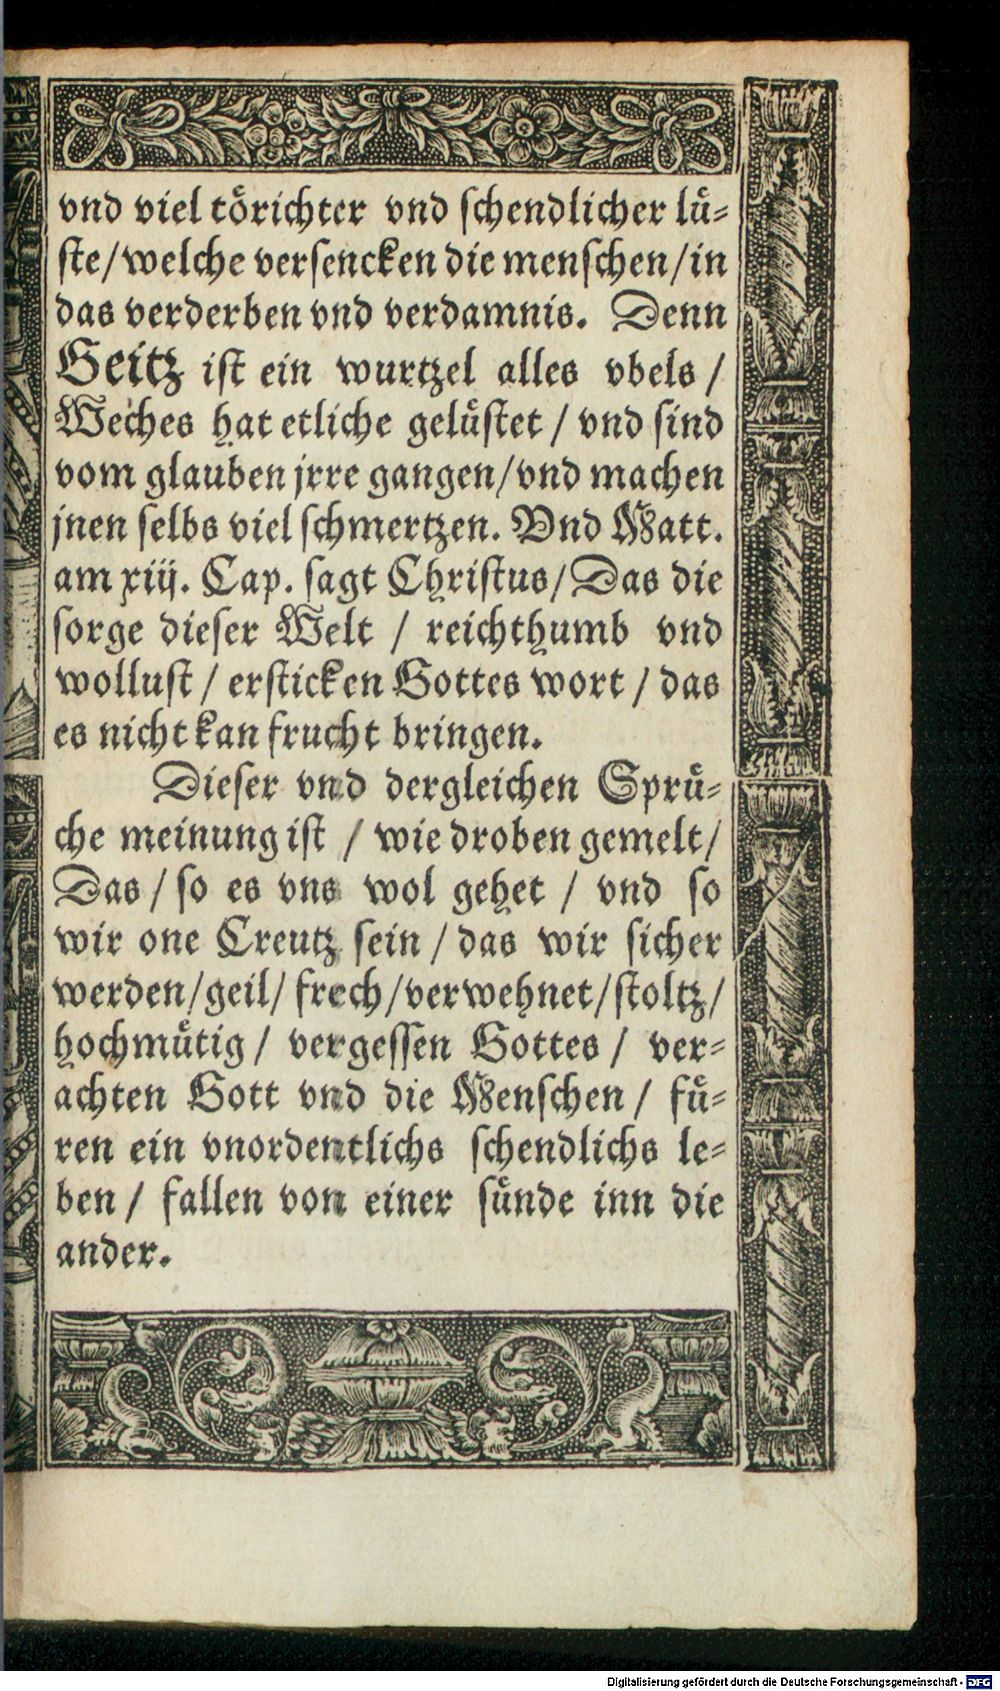 vnd viel toͤrichter vnd ſchendlicher luͤ⸗
ſte/welche verſencken die menſchen/in
das verderben vnd verdamnis. Denn
Geitz iſt ein wurtzel alles vbels /
Weches hat etliche geluͤſtet / vnd ſind
vom glauben jrre gangen/vnd machen
jnen ſelbs viel ſchmertzen. Vnd Matt.
am xiij. Cap. ſagt Chriſtus/Das die
ſorge dieſer Welt / reichthumb vnd
wolluſt / erſticken Gottes wort / das
es nicht kan frucht bringen.
Dieſer vnd dergleichen Spruͤ⸗
che meinung iſt / wie droben gemelt/
Das / ſo es vns wol gehet / vnd ſo
wir one Creutz ſein / das wir ſicher
werden/geil/ frech/verwehnet/ſtoltz/
hochmuͤtig / vergeſſen Gottes / ver⸗
achten Gott vnd die Menſchen / fuͤ⸗
ren ein vnordentlichs ſchendlichs le⸗
ben / fallen von einer ſuͤnde inn die
ander.
Digitalisierung gefördert durch die Deutsche Forschungsgemeinschaft - DFG